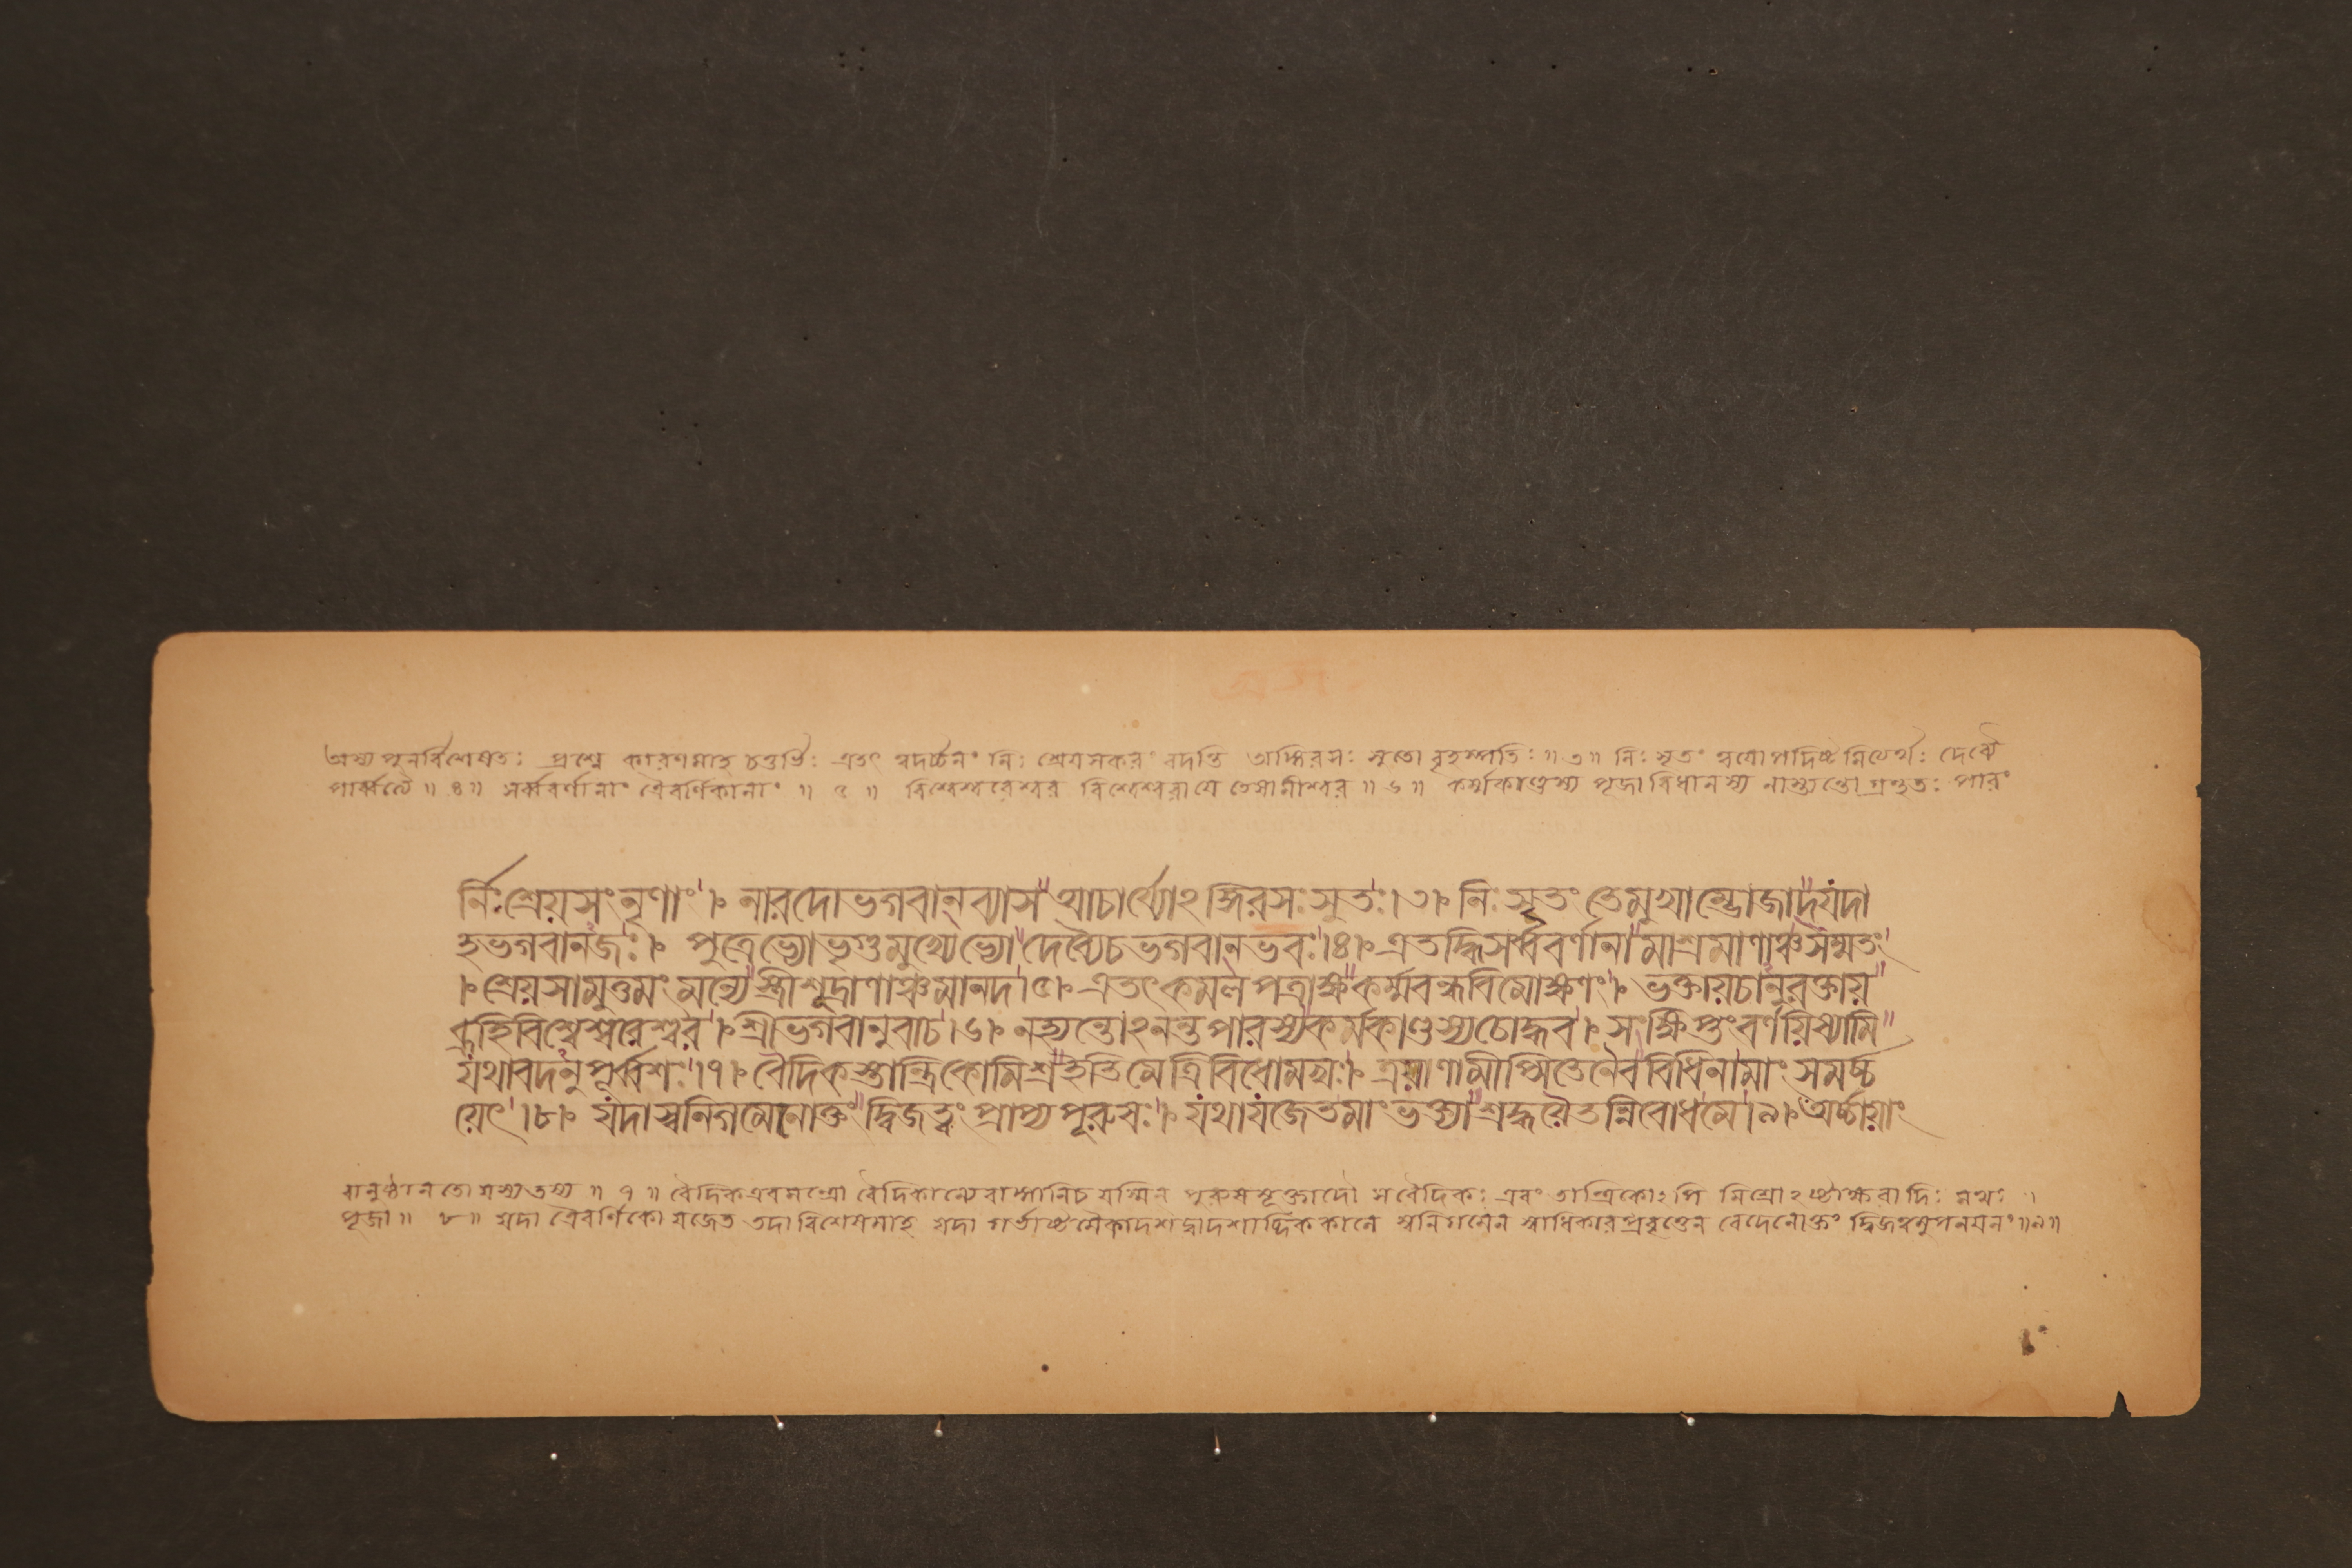 অস্য পুনর্বিশেষতঃ প্রশ্নে কারণমাহ চতুর্ভিঃ এতৎ ত্বদর্চ্চনং নিঃ শ্রেয়সকরং বদন্তি আঙ্গিরসঃ সুতো বৃহস্পতিঃ ॥ ৩ ॥ নিঃ সৃতং ত্বয়োপদিষ্টমিত্যর্থঃ দেব্যৈ
পার্ব্বত্যৈ ॥ ৪ ॥ সর্ব্ববর্ণানাং ত্রৈবর্ণিকানাং ॥ ৫ ॥ বিশ্বেশ্বরেশ্বর বিশ্বেশ্বরা যে তেষামীশ্বর ॥ ৬ ॥ কর্ম্মকাণ্ডস্য পূজাবিধানস্য নাস্ত্যন্তো গ্রন্থতঃ পারং
নিঃশ্রেয়সং নৃণাং । নারদো ভগবান্ ব্যাস আচার্য্যোঽঙ্গিরসঃ সুতঃ । ৩ । নিঃ সৃতং তে মুখাম্ভোজাদ্ যদা
হ ভগবানজঃ । পুত্রেভ্যো ভৃগুমুখ্যেভ্যো দেব্যৈ চ ভগবান্ ভবঃ । ৪ । এতদ্ধি সর্ব্ববর্ণানামাশ্রমাণাঞ্চ সম্মতং
। শ্রেয়সামুত্তমং মন্যে স্ত্রীশূদ্রাণাঞ্চ মানদ । ৫ । এতৎ কমলপত্রাক্ষ কর্ম্মবন্ধবিমোক্ষণং । ভক্তায় চানুরক্তায়
ব্রূহি বিশ্বেশ্বরেশ্বর । শ্রীভগবানুবাচ । ৬ । নহ্যন্তোঽনন্তপারস্য কর্ম্মকাণ্ডস্য চোদ্ধব । সংক্ষিপ্তং বর্ণয়িষ্যামি
যথাবদনুপূর্ব্বশঃ । ৭ । বৈদিকস্তান্ত্রিকো মিশ্র ইতি মে ত্রিবিধো মখঃ । ত্রয়াণামীপ্সিতেনৈব বিধিনা মাং সমর্চ্চ
য়েৎ । ৮ । যদা স্বনিগমেনোক্তং দ্বিজত্বং প্রাপ্য পূরুষঃ । যথা যজেত মাং ভক্ত্যা শ্রদ্ধয়ৈতন্নিবোধ মে । ৯ । অর্চ্চায়াং
বানুষ্ঠানতো যস্য তস্য ॥ ৭ ॥ বৈদিক এব মন্ত্রো বৈদিকান্যেবাঙ্গানি চ যস্মিন্ পুরুষসূক্তাদৌ স বৈদিকঃ এবং তান্ত্রিকোঽপি মিশ্রোঽষ্টাক্ষরাদিঃ মখঃ ।
পূজা ॥ ৮ ॥ যদা ত্রৈবর্ণিকো যজেত তদা বিশেষমাহ যদা গর্ভাষ্টমৈকাদশদ্বাদশাব্দিককালে স্বনিগমেন স্বাধিকারপ্রবৃত্তেন বেদেনোক্তং দ্বিজত্বমুপনয়নং ॥ ৯ ॥